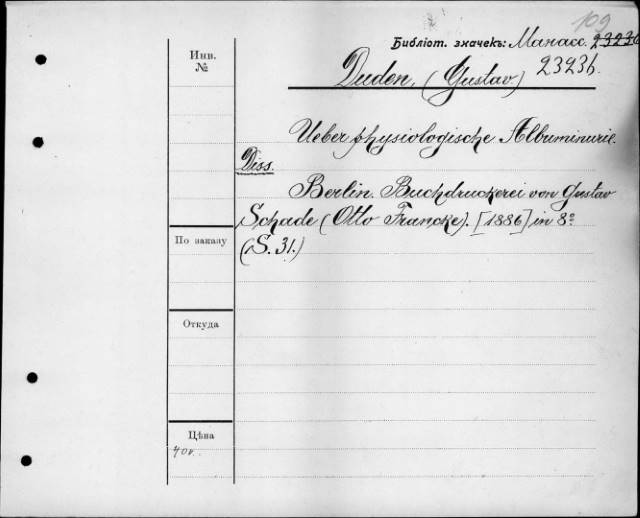 109
Библіот. значекъ: Манасс. 23236
Инв.
№
Duden, (Gustav) 23236.
Ueber physiologische Albuminurie.
Diss.
Berlin. Buchdruckerei von Gustav
Schade (Otto Francke). [1886] in 8º
(S. 31.)
По заказу
Откуда
Цѣна
40к.